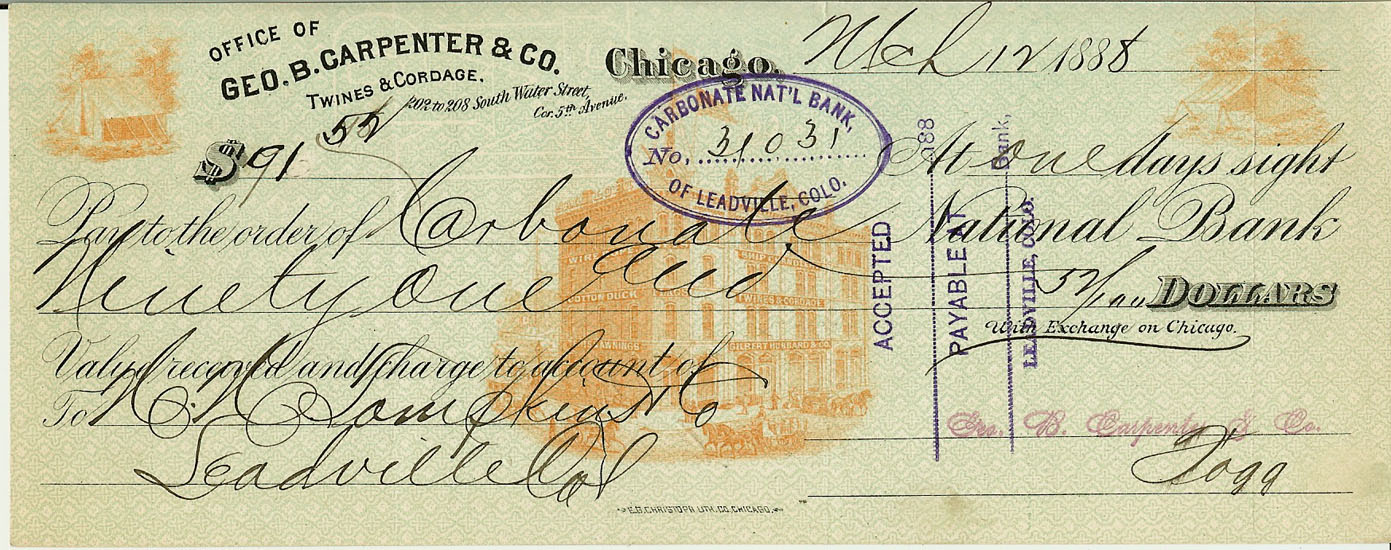 OFFICE OF
GEO. B. CARPENTER & CO.
TWINES & CORDAGE.
202 to 208 South Water Street,
Cor. 5th Avenue.
Chicago. Mch 12 1888
CARBONATE NAT'L BANK,
No. 31031
OF LEADVILLE, COLO.
$91 52
At one days sight
Pay to the order of Carbonate National Bank
Ninety One and 52/100 DOLLARS
With Exchange on Chicago.
Value received and charge to account of
To Tompkins & Co
Leadville Col
ACCEPTED
188
PAYABLE AT
Bank,
LEADVILLE, COLO.
Geo. B. Carpenter & Co.
Fogg
WIRE
COTTON DUCK
AWNINGS
TWINES & CORDAGE
GILBERT HUBBARD & CO.
E.B. CHRISTOPH LITH. CO. CHICAGO.